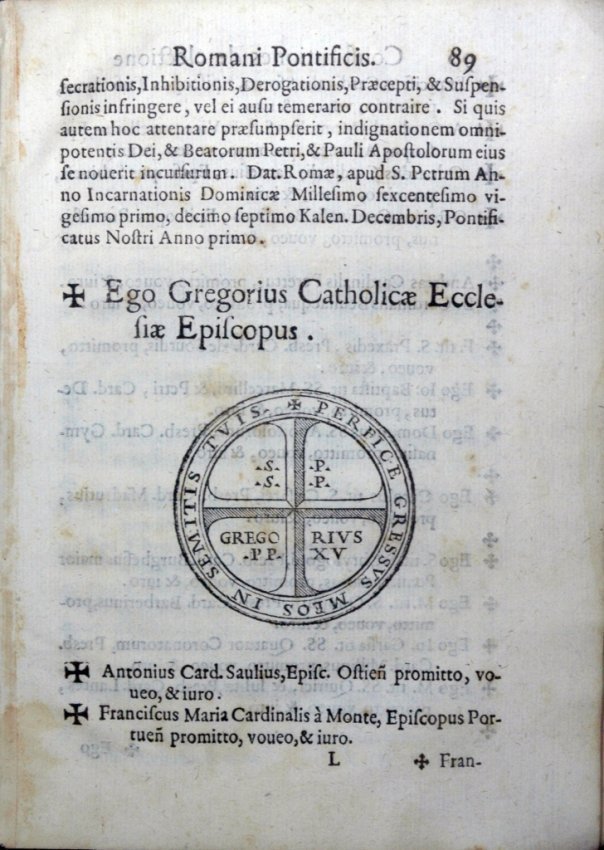 Romani Pontificis. 89
secrationis, Inhibitionis, Derogationis, Præcepti, & Suspen-
sionis infringere, vel ei ausu temerario contraire. Si quis
autem hoc attentare præsumpserit, indignationem omni-
potentis Dei, & Beatorum Petri, & Pauli Apostolorum eius
se nouerit incursurum. Dat. Romæ, apud S. Petrum An-
no Incarnationis Dominicæ Millesimo sexcentesimo vi-
gesimo primo, decimo septimo Kalen. Decembris, Pontifi-
catus Nostri Anno primo.
✠ Ego Gregorius Catholicæ Eccle-
siæ Episcopus.
✠ PERFICE GRESSVS MEOS IN SEMITIS TVIS
.S. .P.
.S. .P.
GREGO RIVS
.PP. XV
✠ Antonius Card. Saulius, Episc. Ostien̄ promitto, vo-
ueo, & iuro.
✠ Franciscus Maria Cardinalis à Monte, Episcopus Por-
tuen̄ promitto, voueo, & iuro.
L ✠ Fran-